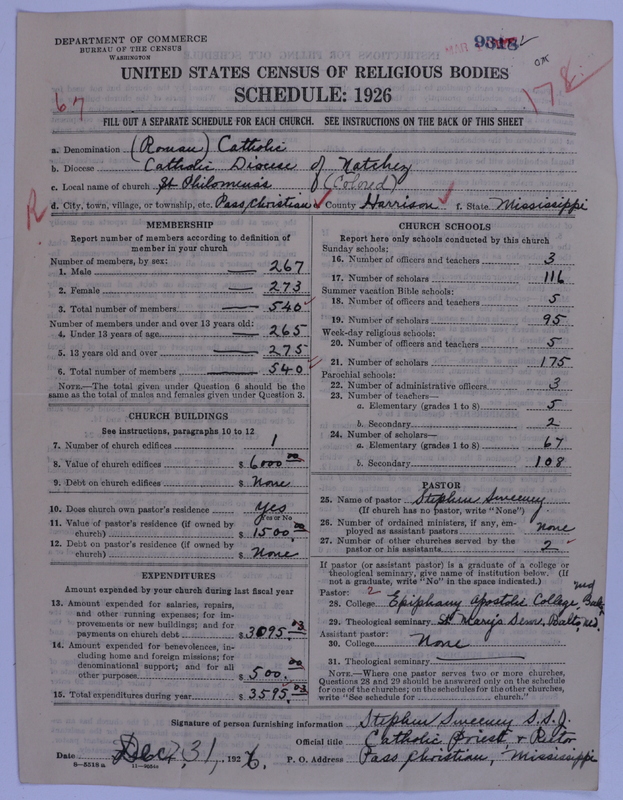 DEPARTMENT OF COMMERCE
BUREAU OF THE CENSUS
WASHINGTON
9318
OK
178
67
UNITED STATES CENSUS OF RELIGIOUS BODIES
SCHEDULE: 1926
FILL OUT A SEPARATE SCHEDULE FOR EACH CHURCH. SEE INSTRUCTIONS ON THE BACK OF THIS SHEET
a. Denomination (Roman) Catholic
b. Diocese Catholic Diocese of Natchez
c. Local name of church St Philomena's (Colored)
R
d. City, town, village, or township, etc. Pass Christian e. County Harrison f. State Mississippi
MEMBERSHIP
Report number of members according to definition of
member in your church
Number of members, by sex:
1. Male 267
2. Female 273
3. Total number of members 540
Number of members under and over 13 years old:
4. Under 13 years of age 265
5. 13 years old and over 275
6. Total number of members 540
NOTE.—The total given under Question 6 should be the
same as the total of males and females given under Question 3.
CHURCH BUILDINGS
See instructions, paragraphs 10 to 12
7. Number of church edifices 1
8. Value of church edifices $ 6000 00
9. Debt on church edifices $ None
10. Does church own pastor's residence Yes
(Yes or No)
11. Value of pastor's residence (if owned by
church) $ 1500.00
12. Debt on pastor's residence (if owned by
church) $ None
EXPENDITURES
Amount expended by your church during last fiscal year
13. Amount expended for salaries, repairs,
and other running expenses; for im-
provements or new buildings; and for
payments on church debt $ 3095.03
14. Amount expended for benevolences, in-
cluding home and foreign missions; for
denominational support; and for all
other purposes $ 500.00
15. Total expenditures during year $ 3595.03
CHURCH SCHOOLS
Report here only schools conducted by this church
Sunday schools:
16. Number of officers and teachers 3
17. Number of scholars 116
Summer vacation Bible schools:
18. Number of officers and teachers 5
19. Number of scholars 95
Week-day religious schools:
20. Number of officers and teachers 5
21. Number of scholars 175
Parochial schools:
22. Number of administrative officers 3
23. Number of teachers—
a. Elementary (grades 1 to 8) 5
b. Secondary 2
24. Number of scholars—
a. Elementary (grades 1 to 8) 67
b. Secondary 108
PASTOR
25. Name of pastor Stephen Sweeney
(If church has no pastor, write "None")
26. Number of ordained ministers, if any, em-
ployed as assistant pastors none
27. Number of other churches served by the
pastor or his assistants 2
If pastor (or assistant pastor) is a graduate of a college or
theological seminary, give name of institution below. (If
not a graduate, write "No" in the space indicated.)
Pastor: 2
28. College Epiphany Apostolic College Balto Md
29. Theological seminary St Mary's Sem., Balto, Md.
Assistant pastor:
30. College None
31. Theological seminary
NOTE.—Where one pastor serves two or more churches,
Questions 28 and 29 should be answered only on the schedule
for one of the churches; on the schedules for the other churches,
write "See schedule for church."
Signature of person furnishing information Stephen Sweeney S.S.J.
Official title Catholic Priest & Rector
Date Dec. 31, 1926. P. O. Address Pass Christian, Mississippi
8—5518 a